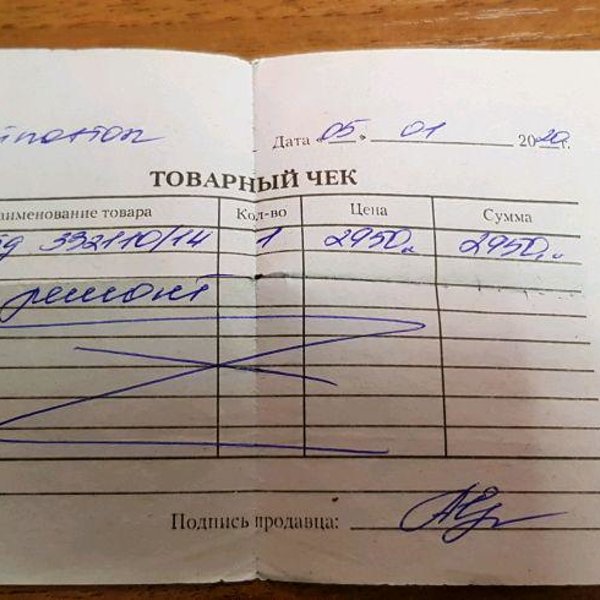 Дата «05» 01 2020г.
ТОВАРНЫЙ ЧЕК
аименование товара Кол-во Цена Сумма
332110/14 1 2950 2950
ремонт
Подпись продавца: